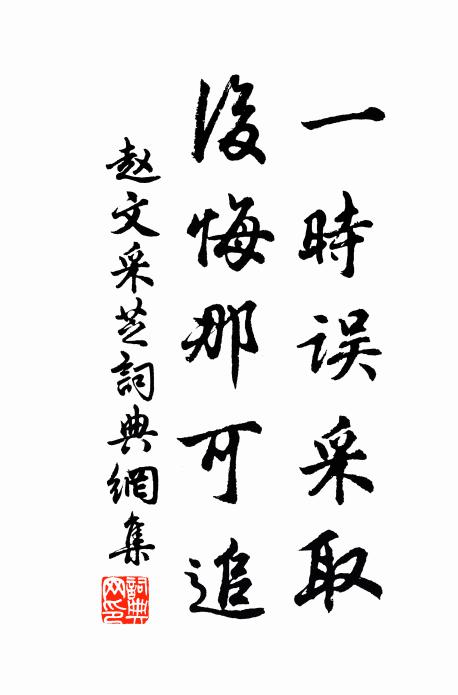 一時误采取
後悔那可追
赵文采芝詞典網集
詞典网印